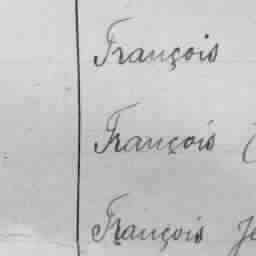 François
François
François Je